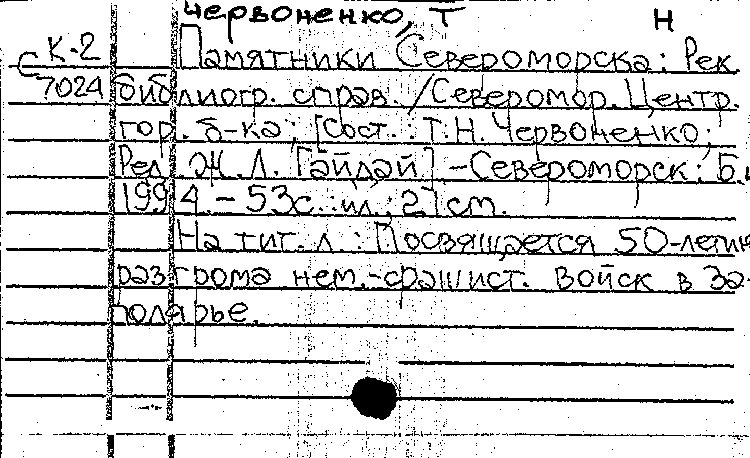 Червоненко, Т Н
К-2 Памятники Североморска: Рек.
С 7024 библиогр. справ. /Северомор. Центр.
гор. б-ка; [Сост.: Т.Н. Червоненко;
Ред. Ж.Л. Гайдай] - Североморск: Б.и
1994. - 53с.: ил.; 21 см.
На тит. л.: Посвящается 50-летию
разгрома нем.-фашист. войск в За-
полярье.